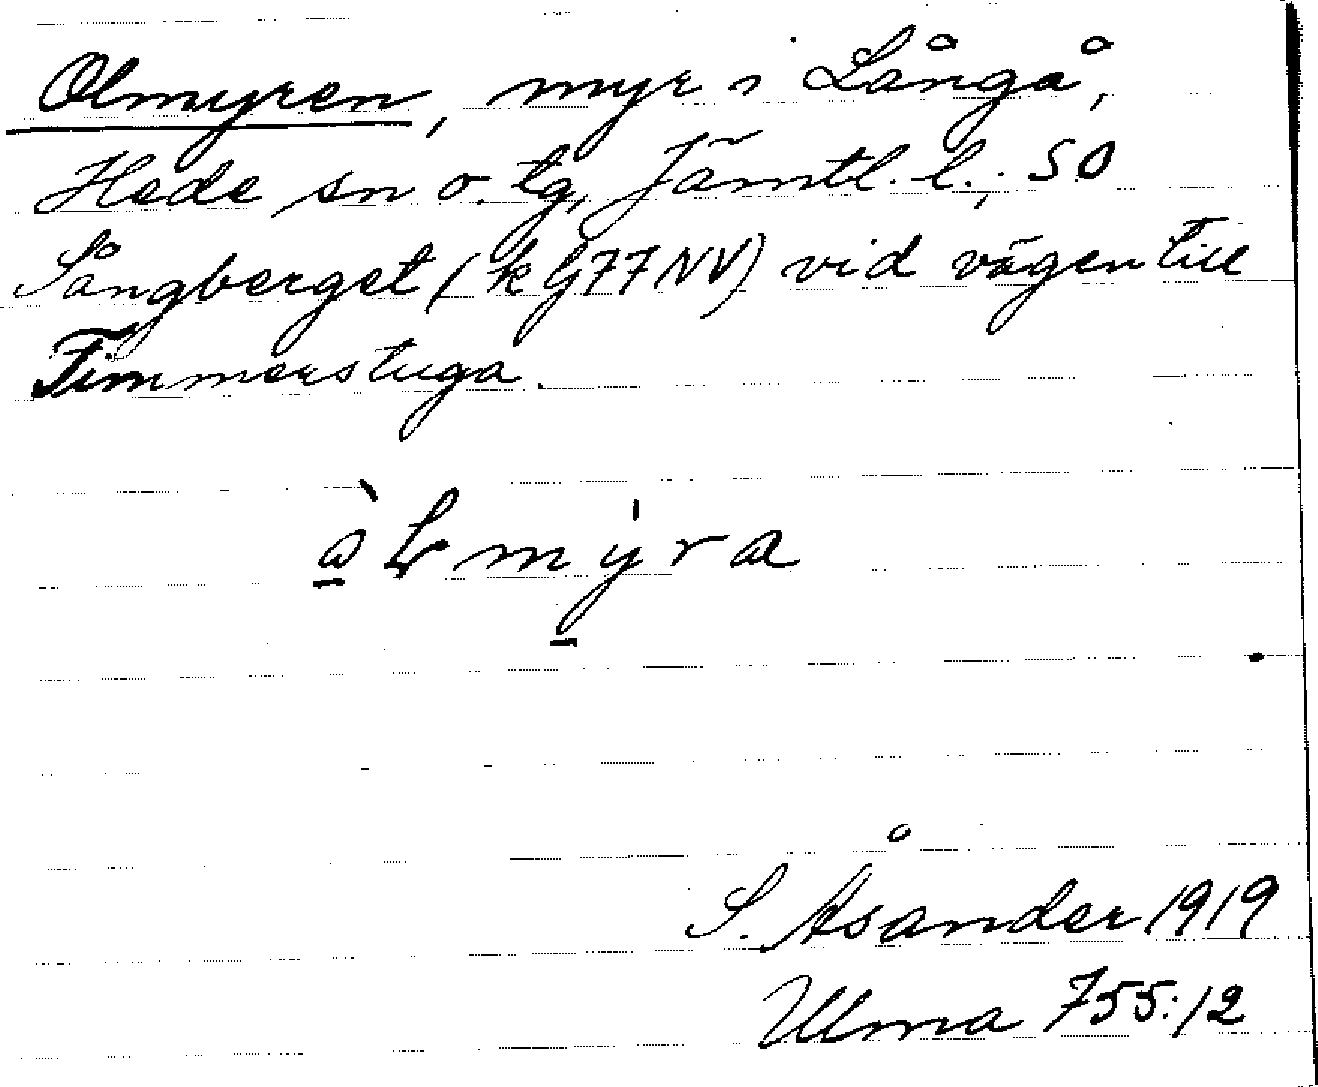 Olmyren, myr i Långå,
Hede sn o. tg, Jämtl. l.; SO
Sångberget (k G77NV) vid vägen till
Timmerstuga.
S. Åsander 1919
Ulma 755:12